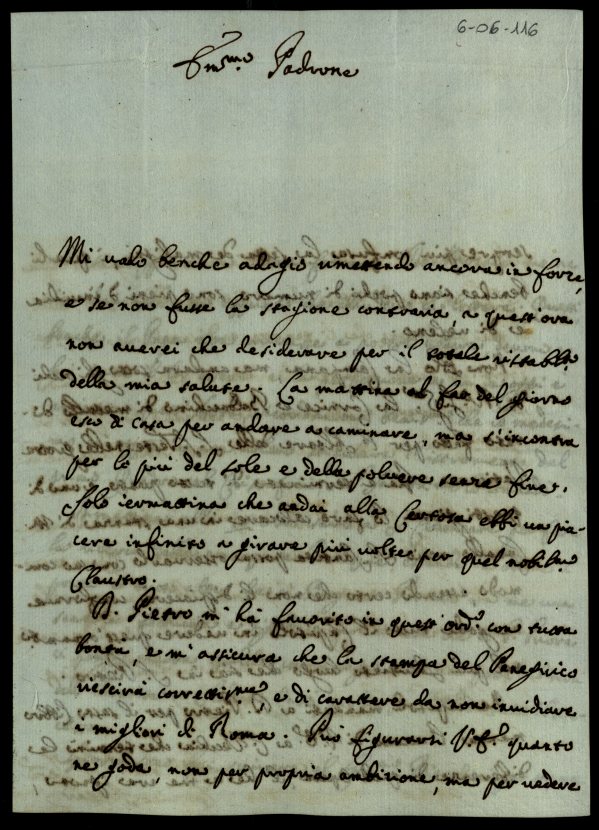 6-06-116
Em.mo Padrone
Mi vado benche adagio rimettendo ancora in forze,
e se non fusse la stagione contraria, a quest'ora
non averei che desiderare per il totale ristabili.to
della mia salute. La mattina al far del giorno
esco di casa per andare a caminare, ma s'incontra
per lo più del sole e della polvere senza fine.
Solo iermattina che andai alla Certosa ebbi un pia-
cere infinito a girare più volte per quel nobiliss.mo
Claustro.
D. Pietro m'hà favorito in quest'ord.o con tutta
bontà, e m'assicura che la stampa del Panegirico
riescirà correttis.ma, e di carattere da non invidiare
i migliori di Roma. Può figurarsi V. E. quanto
ne goda, non per propria ambizione, ma per vedere